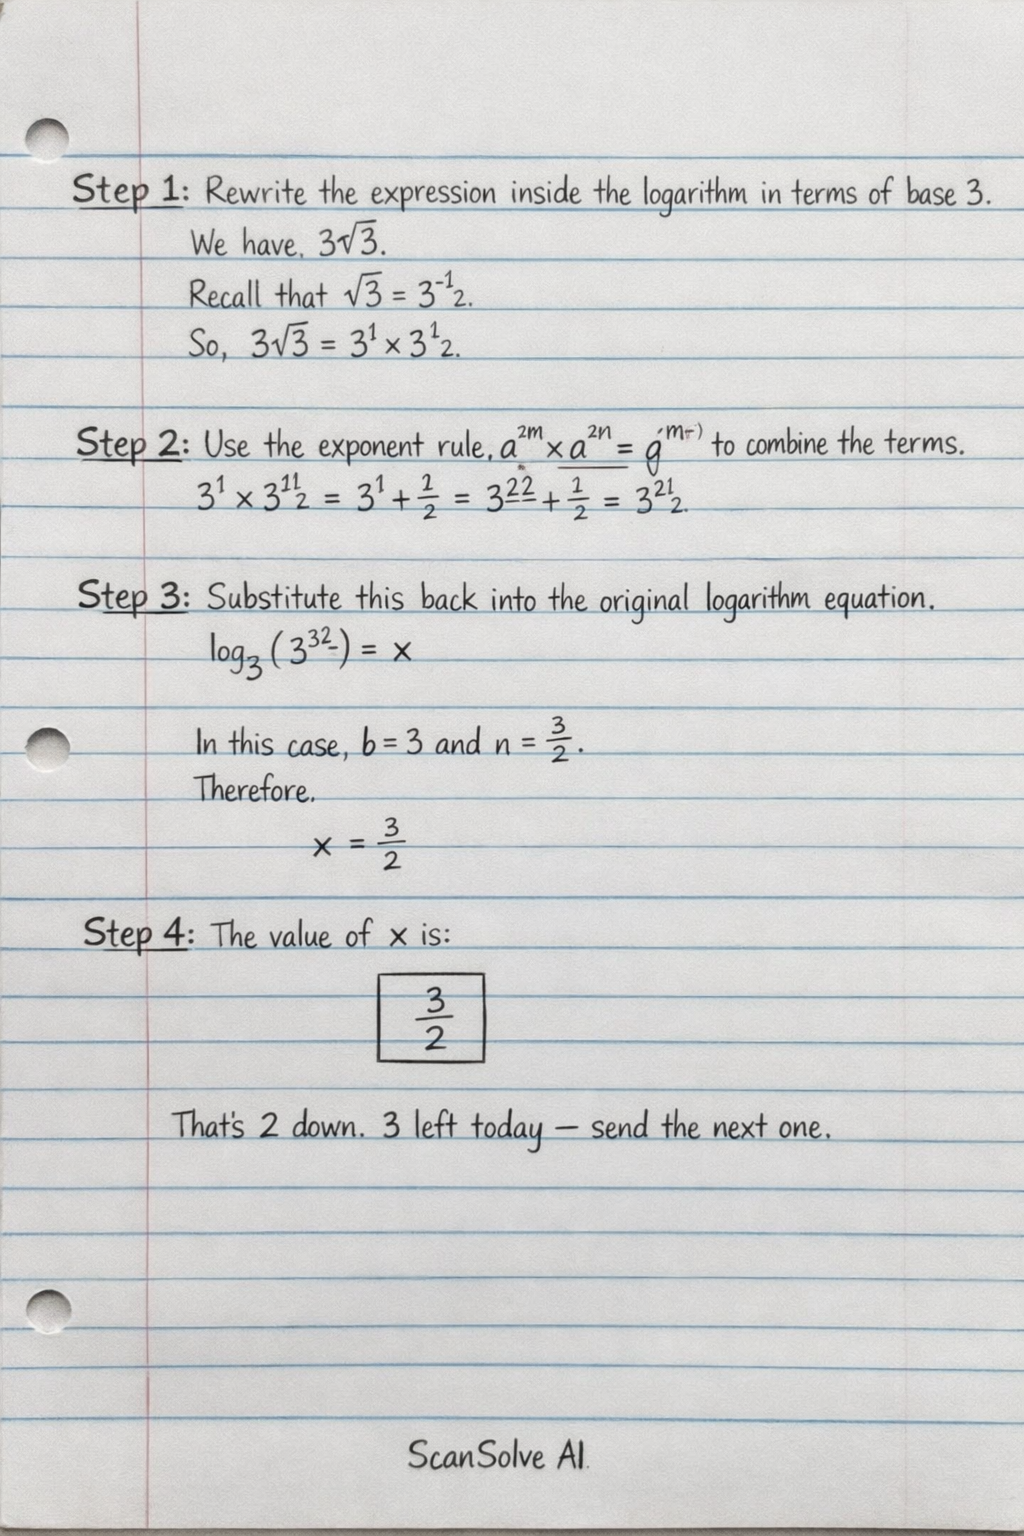 Step 1: Rewrite the expression inside the logarithm in terms of base 3.
We have, 3√3.
Recall that √3 = 3⁻¹2.
So, 3√3 = 3¹ × 3¹2.
Step 2: Use the exponent rule, a²ᵐ × a²ⁿ = g to combine the terms.
3¹ × 3¹¹2 = 3¹ + 1/2 = 3²² + 1/2 = 3²¹2.
Step 3: Substitute this back into the original logarithm equation.
log₃ (3³²-) = x
In this case, b = 3 and n = 3/2.
Therefore.
x = 3/2
Step 4: The value of x is:
3/2
That's 2 down. 3 left today — send the next one.
ScanSolve AI.